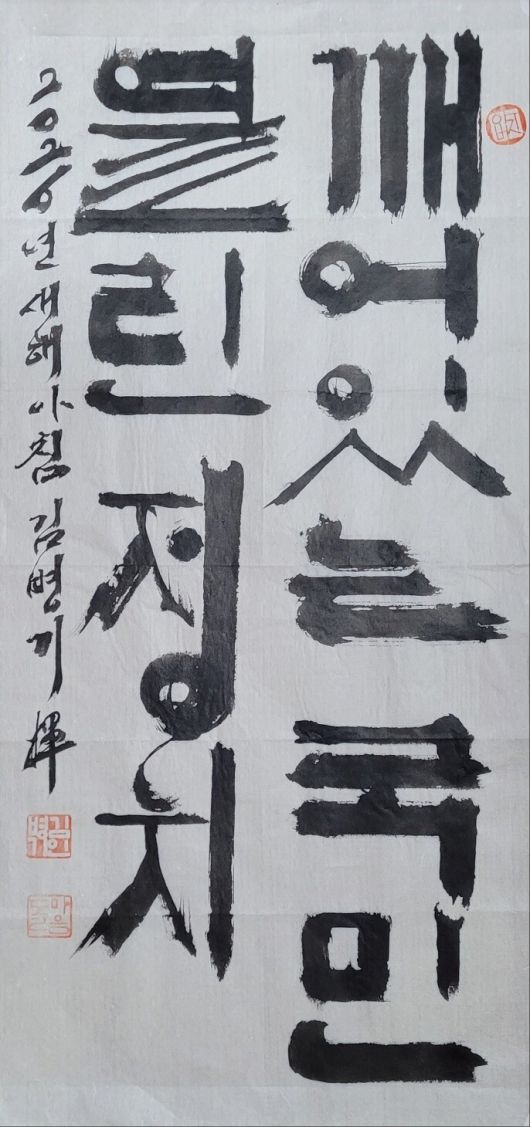 깨어있는 국민
열린 정치
2026년 새해 아침 김병기 揮